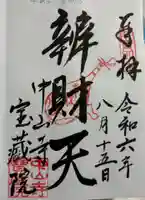 奉拝
令和六年
八月十五日
辨財天
中山寺
宝蔵院